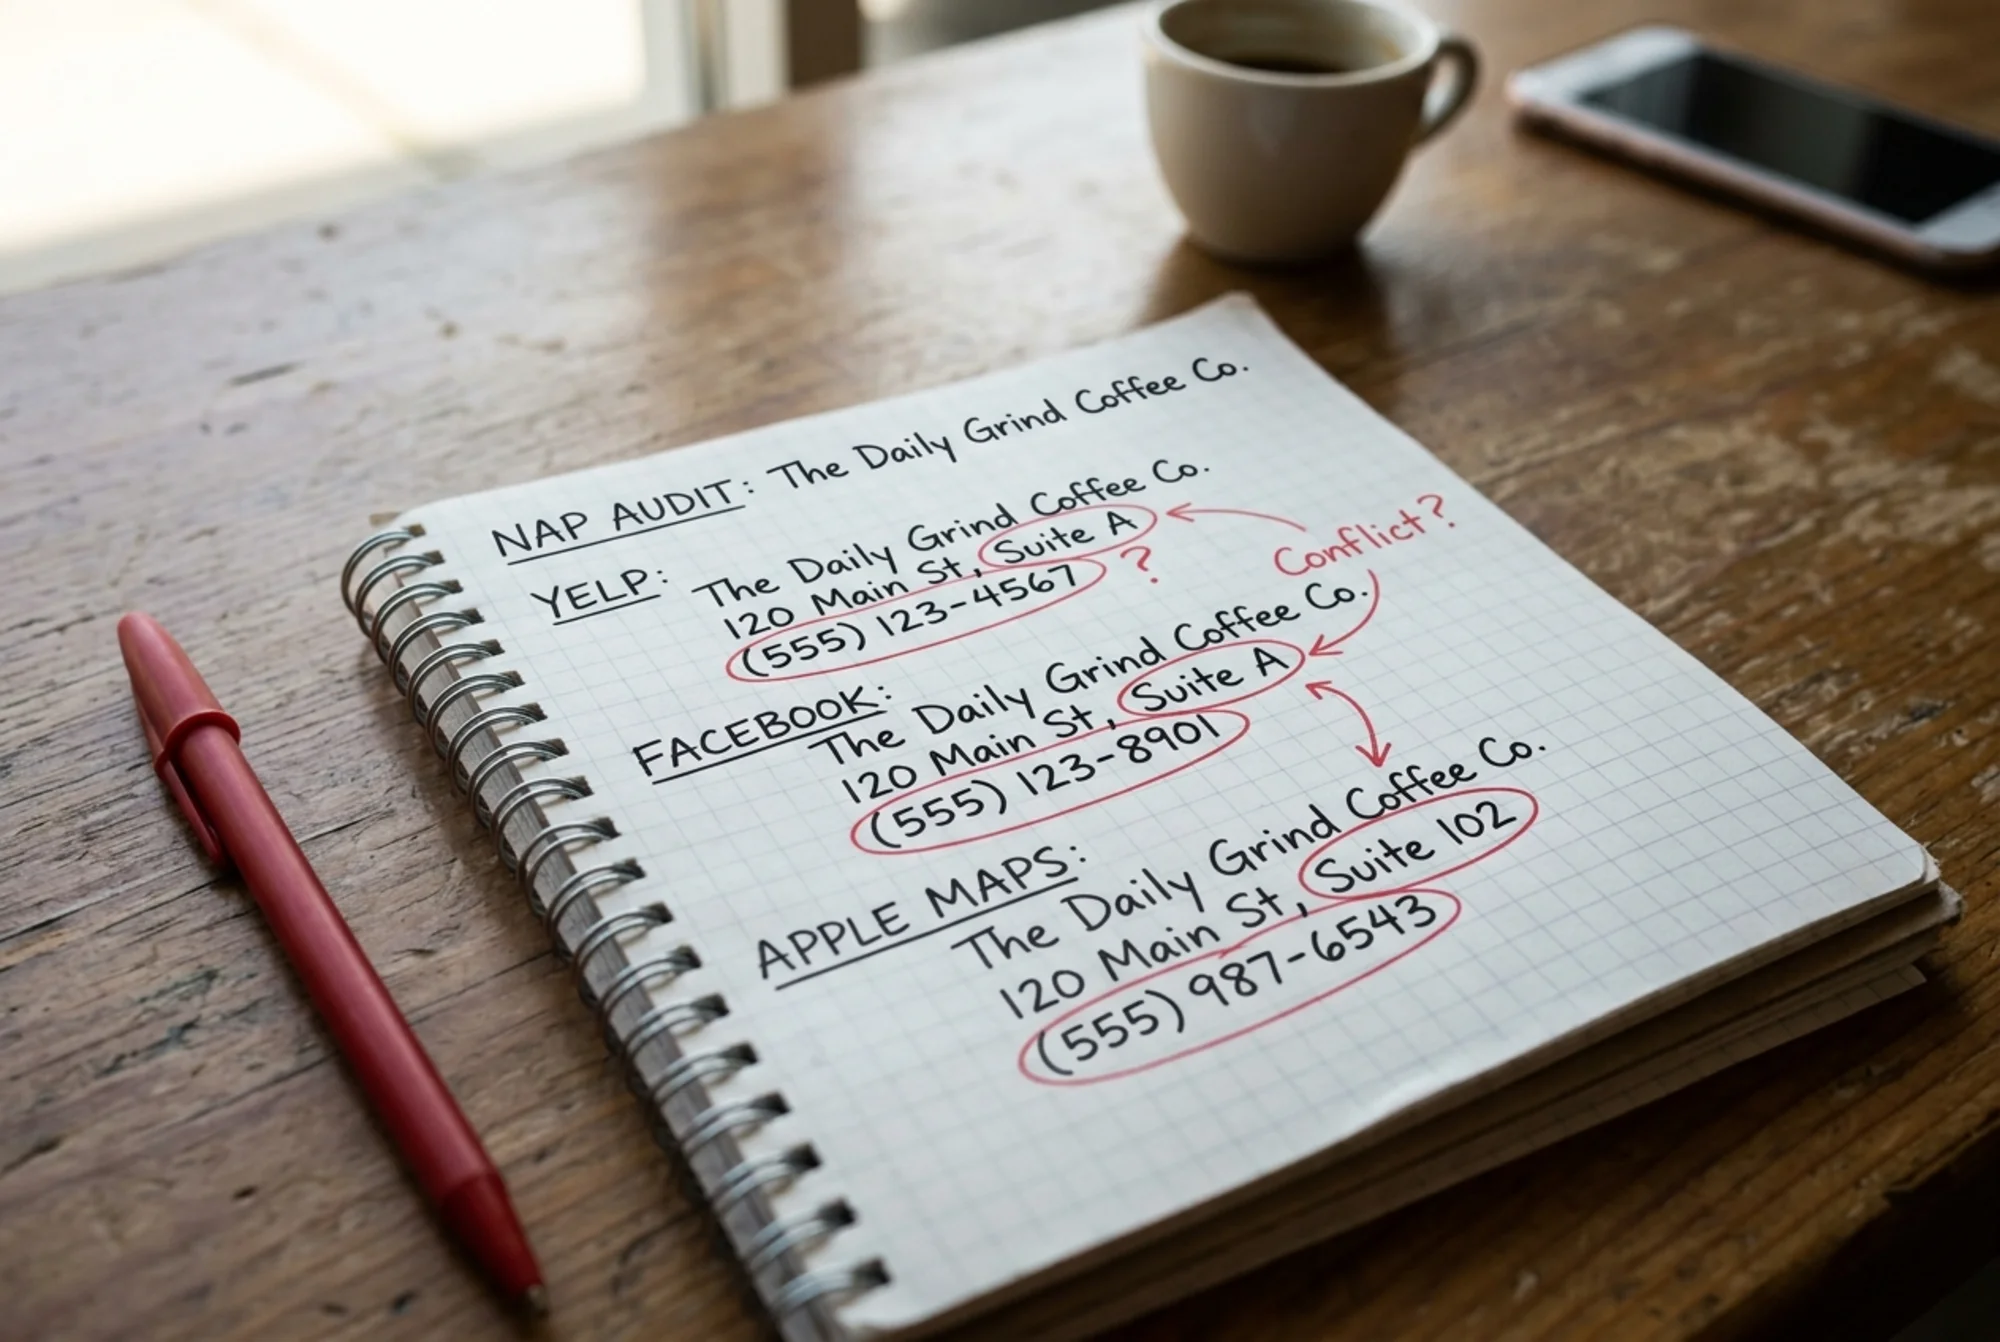 NAP AUDIT: The Daily Grind Coffee Co.
YELP: The Daily Grind Coffee Co.
120 Main St, Suite A
(555) 123-4567 ?
Conflict?
FACEBOOK: The Daily Grind Coffee Co.
120 Main St, Suite A
(555) 123-8901
APPLE MAPS: The Daily Grind Coffee Co.
120 Main St, Suite 102
(555) 987-6543